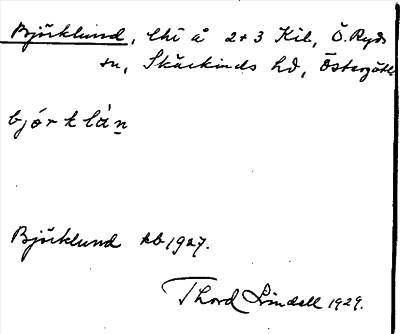 Björklund, lht å 2+3 Kil, Ö. Ryds
sn, Skärkinds hd, Östergötl
bjór k làn
Björklund kb 1927.
Thord Lindell 1929.